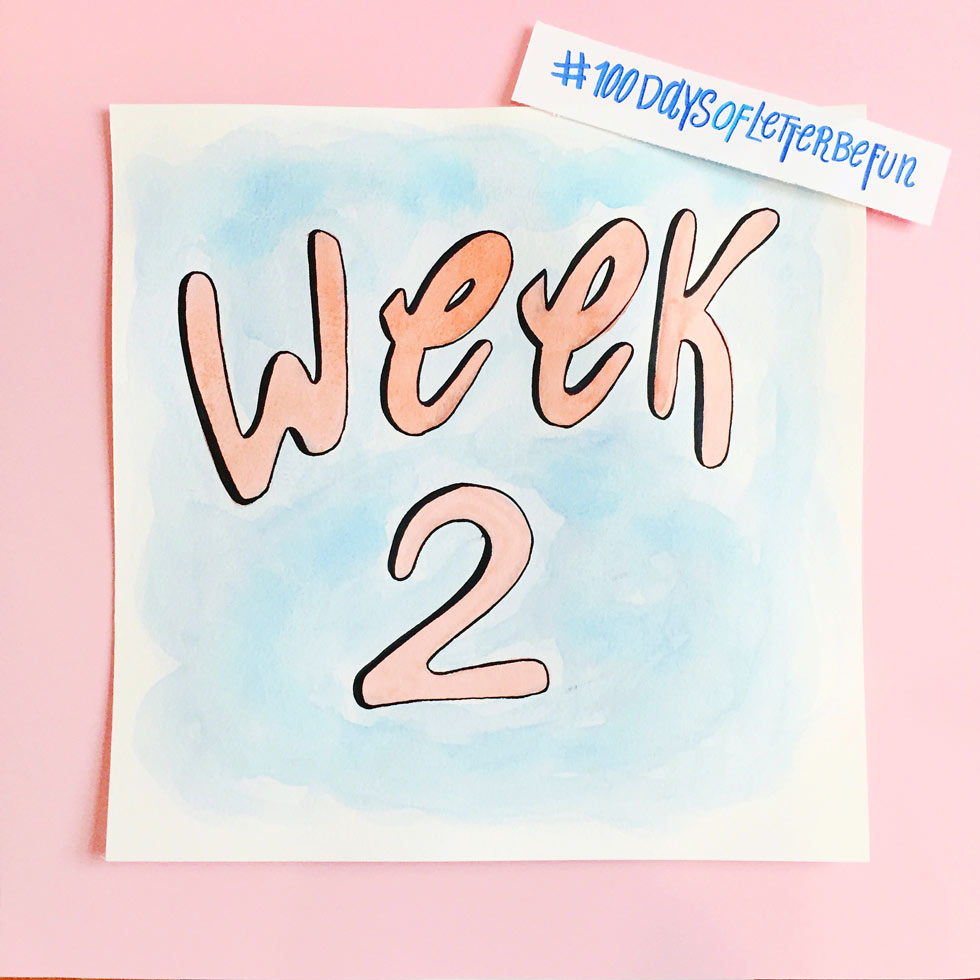 #100DaysofLetterBeFun
Week
2